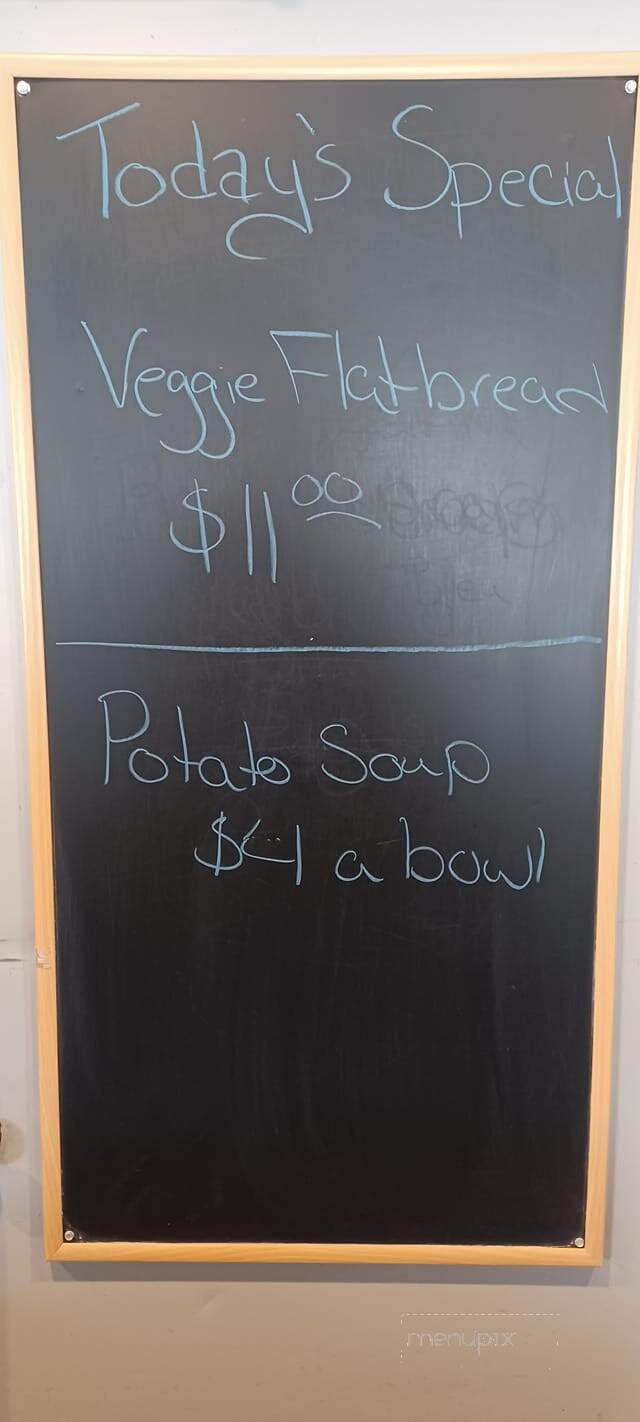 Today's Special
Veggie Flatbread
$11 00
Potato Soup
$4 a bowl
menupix